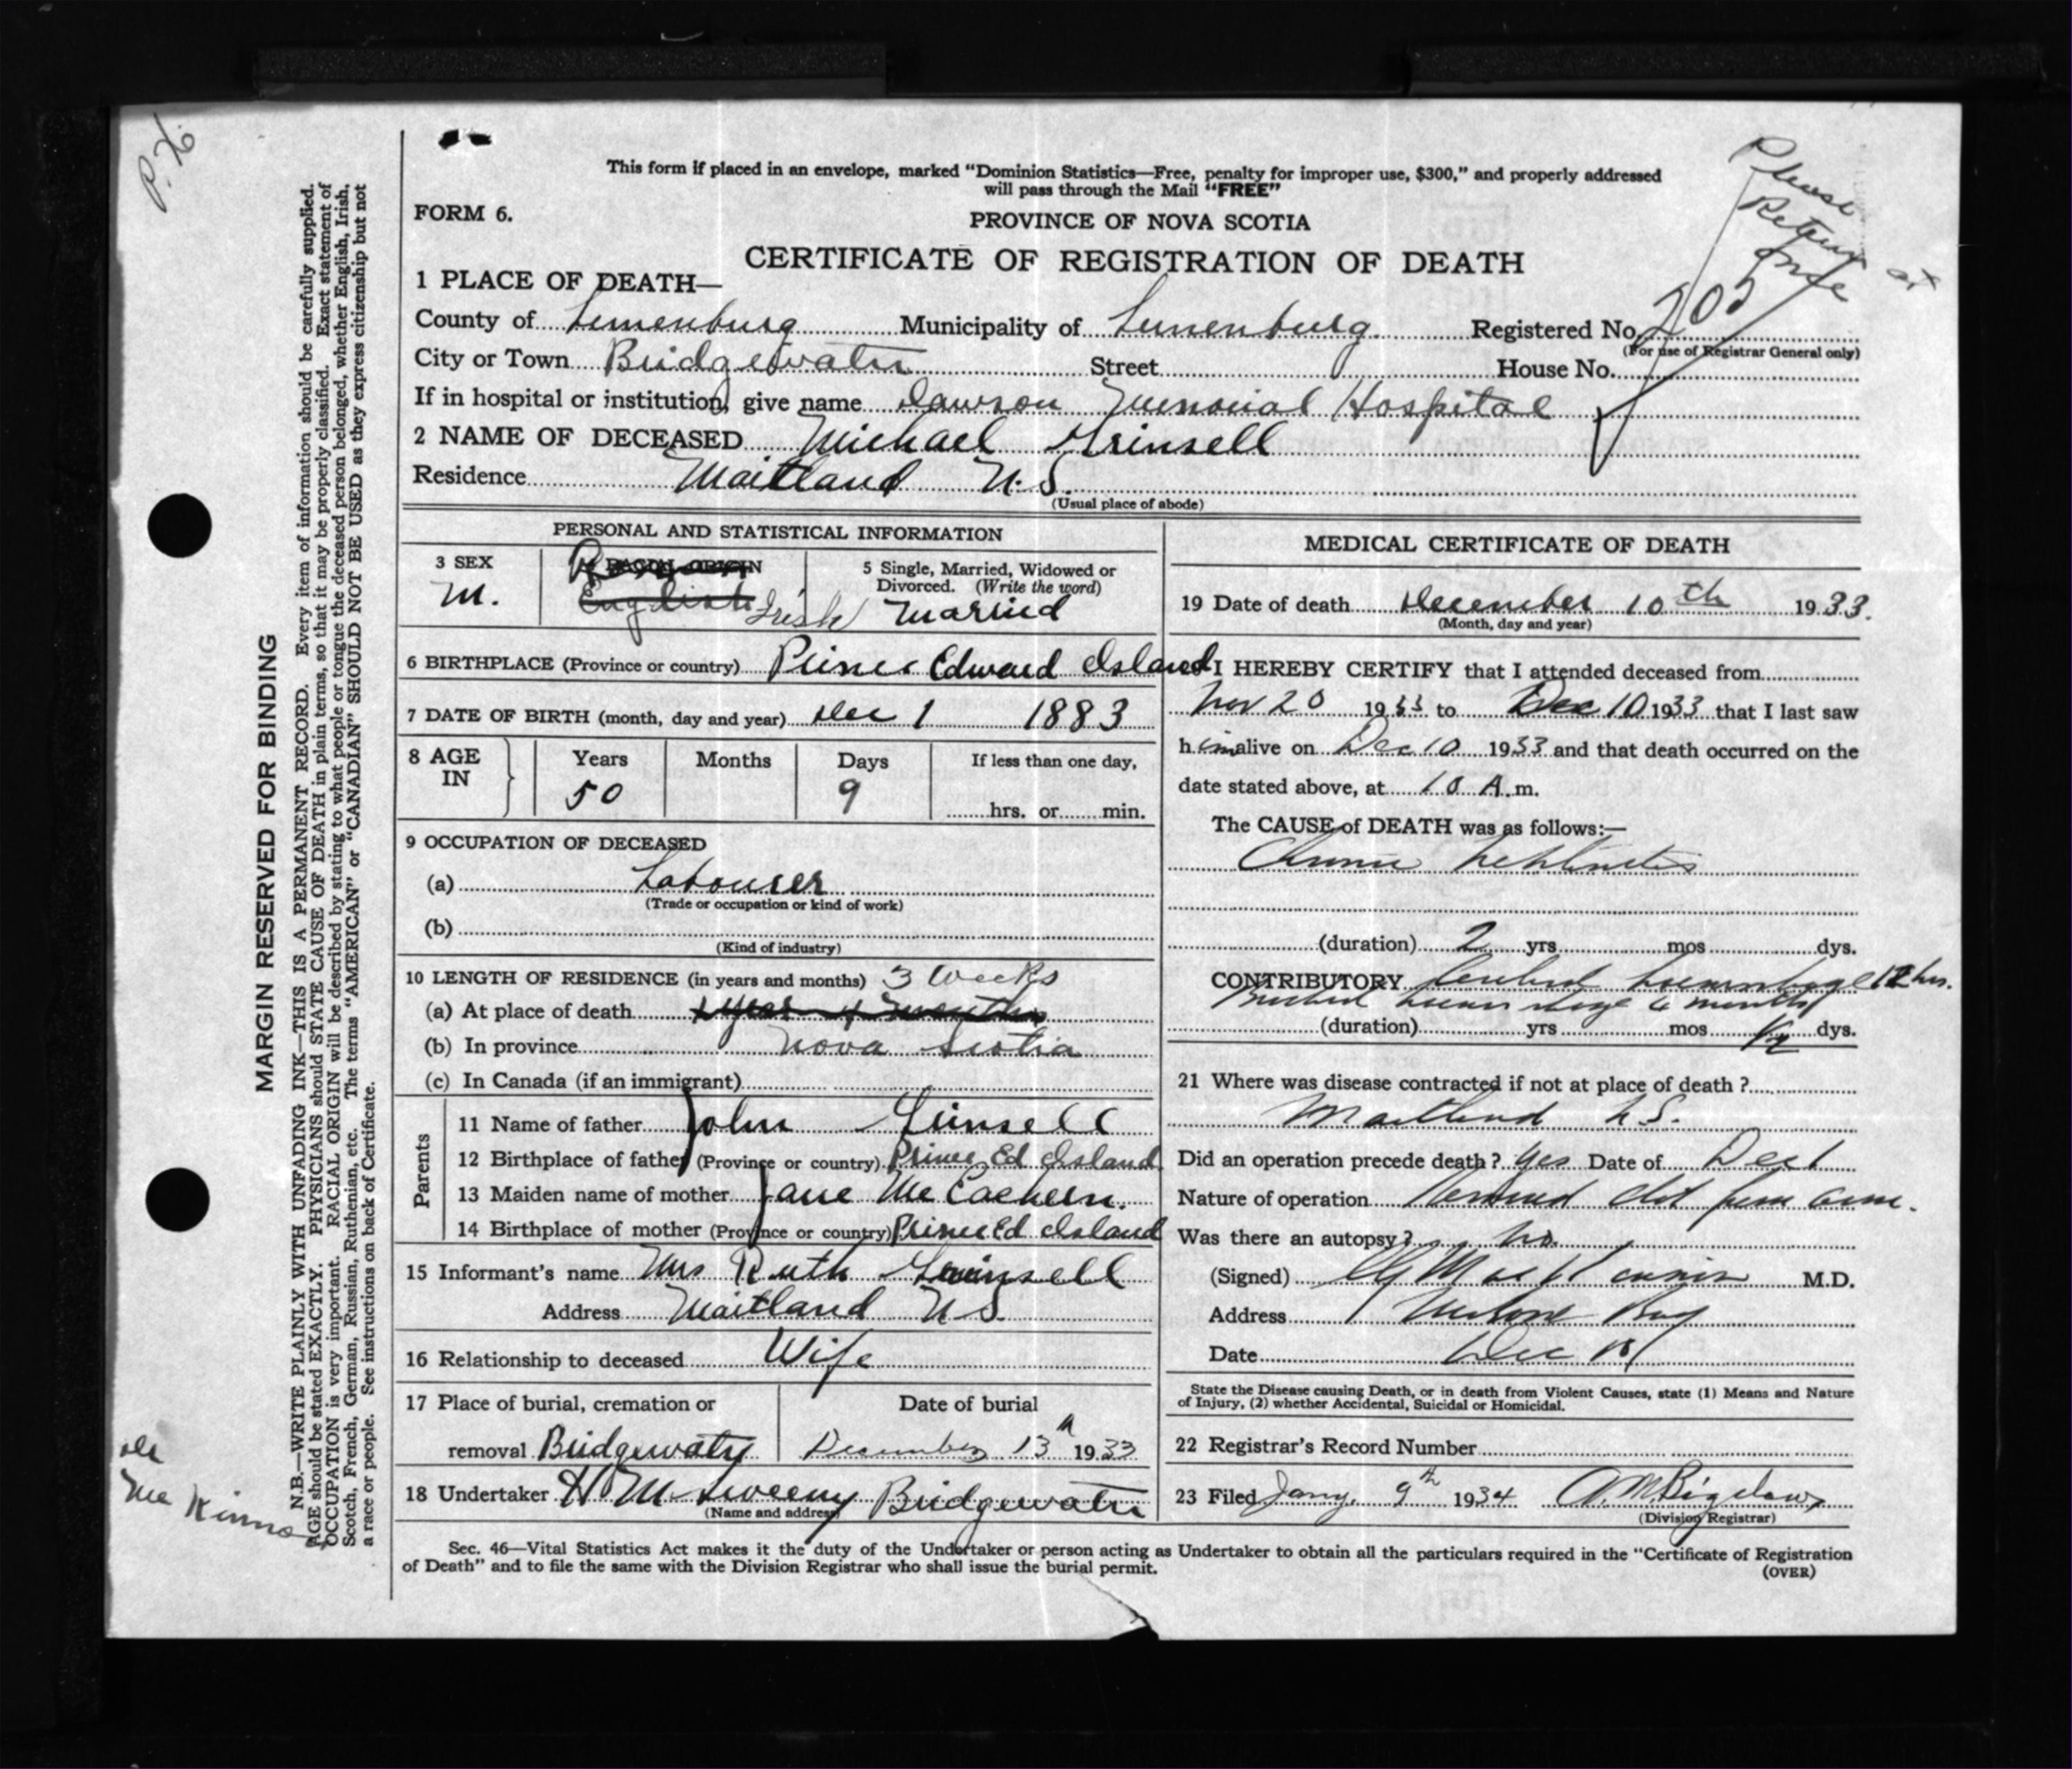 P.H.
This form if placed in an envelope, marked “Dominion Statistics—Free, penalty for improper use, $300,” and properly addressed
will pass through the Mail “FREE”
Please
Return at
once
FORM 6.
PROVINCE OF NOVA SCOTIA
CERTIFICATE OF REGISTRATION OF DEATH
1 PLACE OF DEATH—
County of Lunenburg Municipality of Lunenburg Registered No. 205
(For use of Registrar General only)
City or Town Bridgewater Street House No.
If in hospital or institution, give name Dawson Memorial Hospital
2 NAME OF DECEASED Michael Grinsell
Residence Maitland N.S.
(Usual place of abode)
PERSONAL AND STATISTICAL INFORMATION
3 SEX
M.
RACIAL ORIGIN
English Irish
5 Single, Married, Widowed or
Divorced. (Write the word)
Married
6 BIRTHPLACE (Province or country) Prince Edward Island
7 DATE OF BIRTH (month, day and year) Dec 1 1883
8 AGE IN
Years Months Days If less than one day,
50 9
hrs. or min.
9 OCCUPATION OF DECEASED
(a) Labourer
(Trade or occupation or kind of work)
(b)
(Kind of industry)
10 LENGTH OF RESIDENCE (in years and months) 3 Weeks
(a) At place of death
(b) In province Nova Scotia
(c) In Canada (if an immigrant)
Parents
11 Name of father John Grinsell
12 Birthplace of father (Province or country) Prince Ed Island
13 Maiden name of mother Jane McEachern.
14 Birthplace of mother (Province or country) Prince Ed Island
15 Informant's name Mrs Ruth Grinsell
Address Maitland N.S.
16 Relationship to deceased Wife
17 Place of burial, cremation or
removal Bridgewater
Date of burial
December 13th 1933
18 Undertaker H McSweeny Bridgewater
(Name and address)
MEDICAL CERTIFICATE OF DEATH
19 Date of death December 10th 1933.
(Month, day and year)
I HEREBY CERTIFY that I attended deceased from
Nov 20 1933 to Dec 10 1933 that I last saw
him alive on Dec 10 1933 and that death occurred on the
date stated above, at 10 A.m.
The CAUSE of DEATH was as follows:—
Chronic Nephritis
(duration) 2 yrs mos dys.
CONTRIBUTORY Cerebral haemorrhage 12 hrs.
haemorrhage 6 months
(duration) yrs mos ½ dys.
21 Where was disease contracted if not at place of death?
Maitland N.S.
Did an operation precede death? Yes Date of Dec 1
Nature of operation Removed clot from arm.
Was there an autopsy? No.
(Signed) M.D.
Address Mahone Bay
Date Dec
State the Disease causing Death, or in death from Violent Causes, state (1) Means and Nature
of Injury, (2) whether Accidental, Suicidal or Homicidal.
22 Registrar's Record Number
23 Filed Jany. 9th 1934 A.M. Bigelow
(Division Registrar)
Sec. 46—Vital Statistics Act makes it the duty of the Undertaker or person acting as Undertaker to obtain all the particulars required in the “Certificate of Registration
of Death” and to file the same with the Division Registrar who shall issue the burial permit.
(OVER)
MARGIN RESERVED FOR BINDING
N.B.—WRITE PLAINLY WITH UNFADING INK—THIS IS A PERMANENT RECORD. Every item of information should be carefully supplied.
AGE should be stated EXACTLY. PHYSICIANS should STATE CAUSE OF DEATH in plain terms, so that it may be properly classified. Exact statement of
OCCUPATION is very important. RACIAL ORIGIN will be described by stating to what people or tongue the deceased person belonged, whether English, Irish,
Scotch, French, German, Russian, Ruthenian, etc. The terms “AMERICAN” or “CANADIAN” SHOULD NOT BE USED as they express citizenship but not
a race or people. See instructions on back of Certificate.